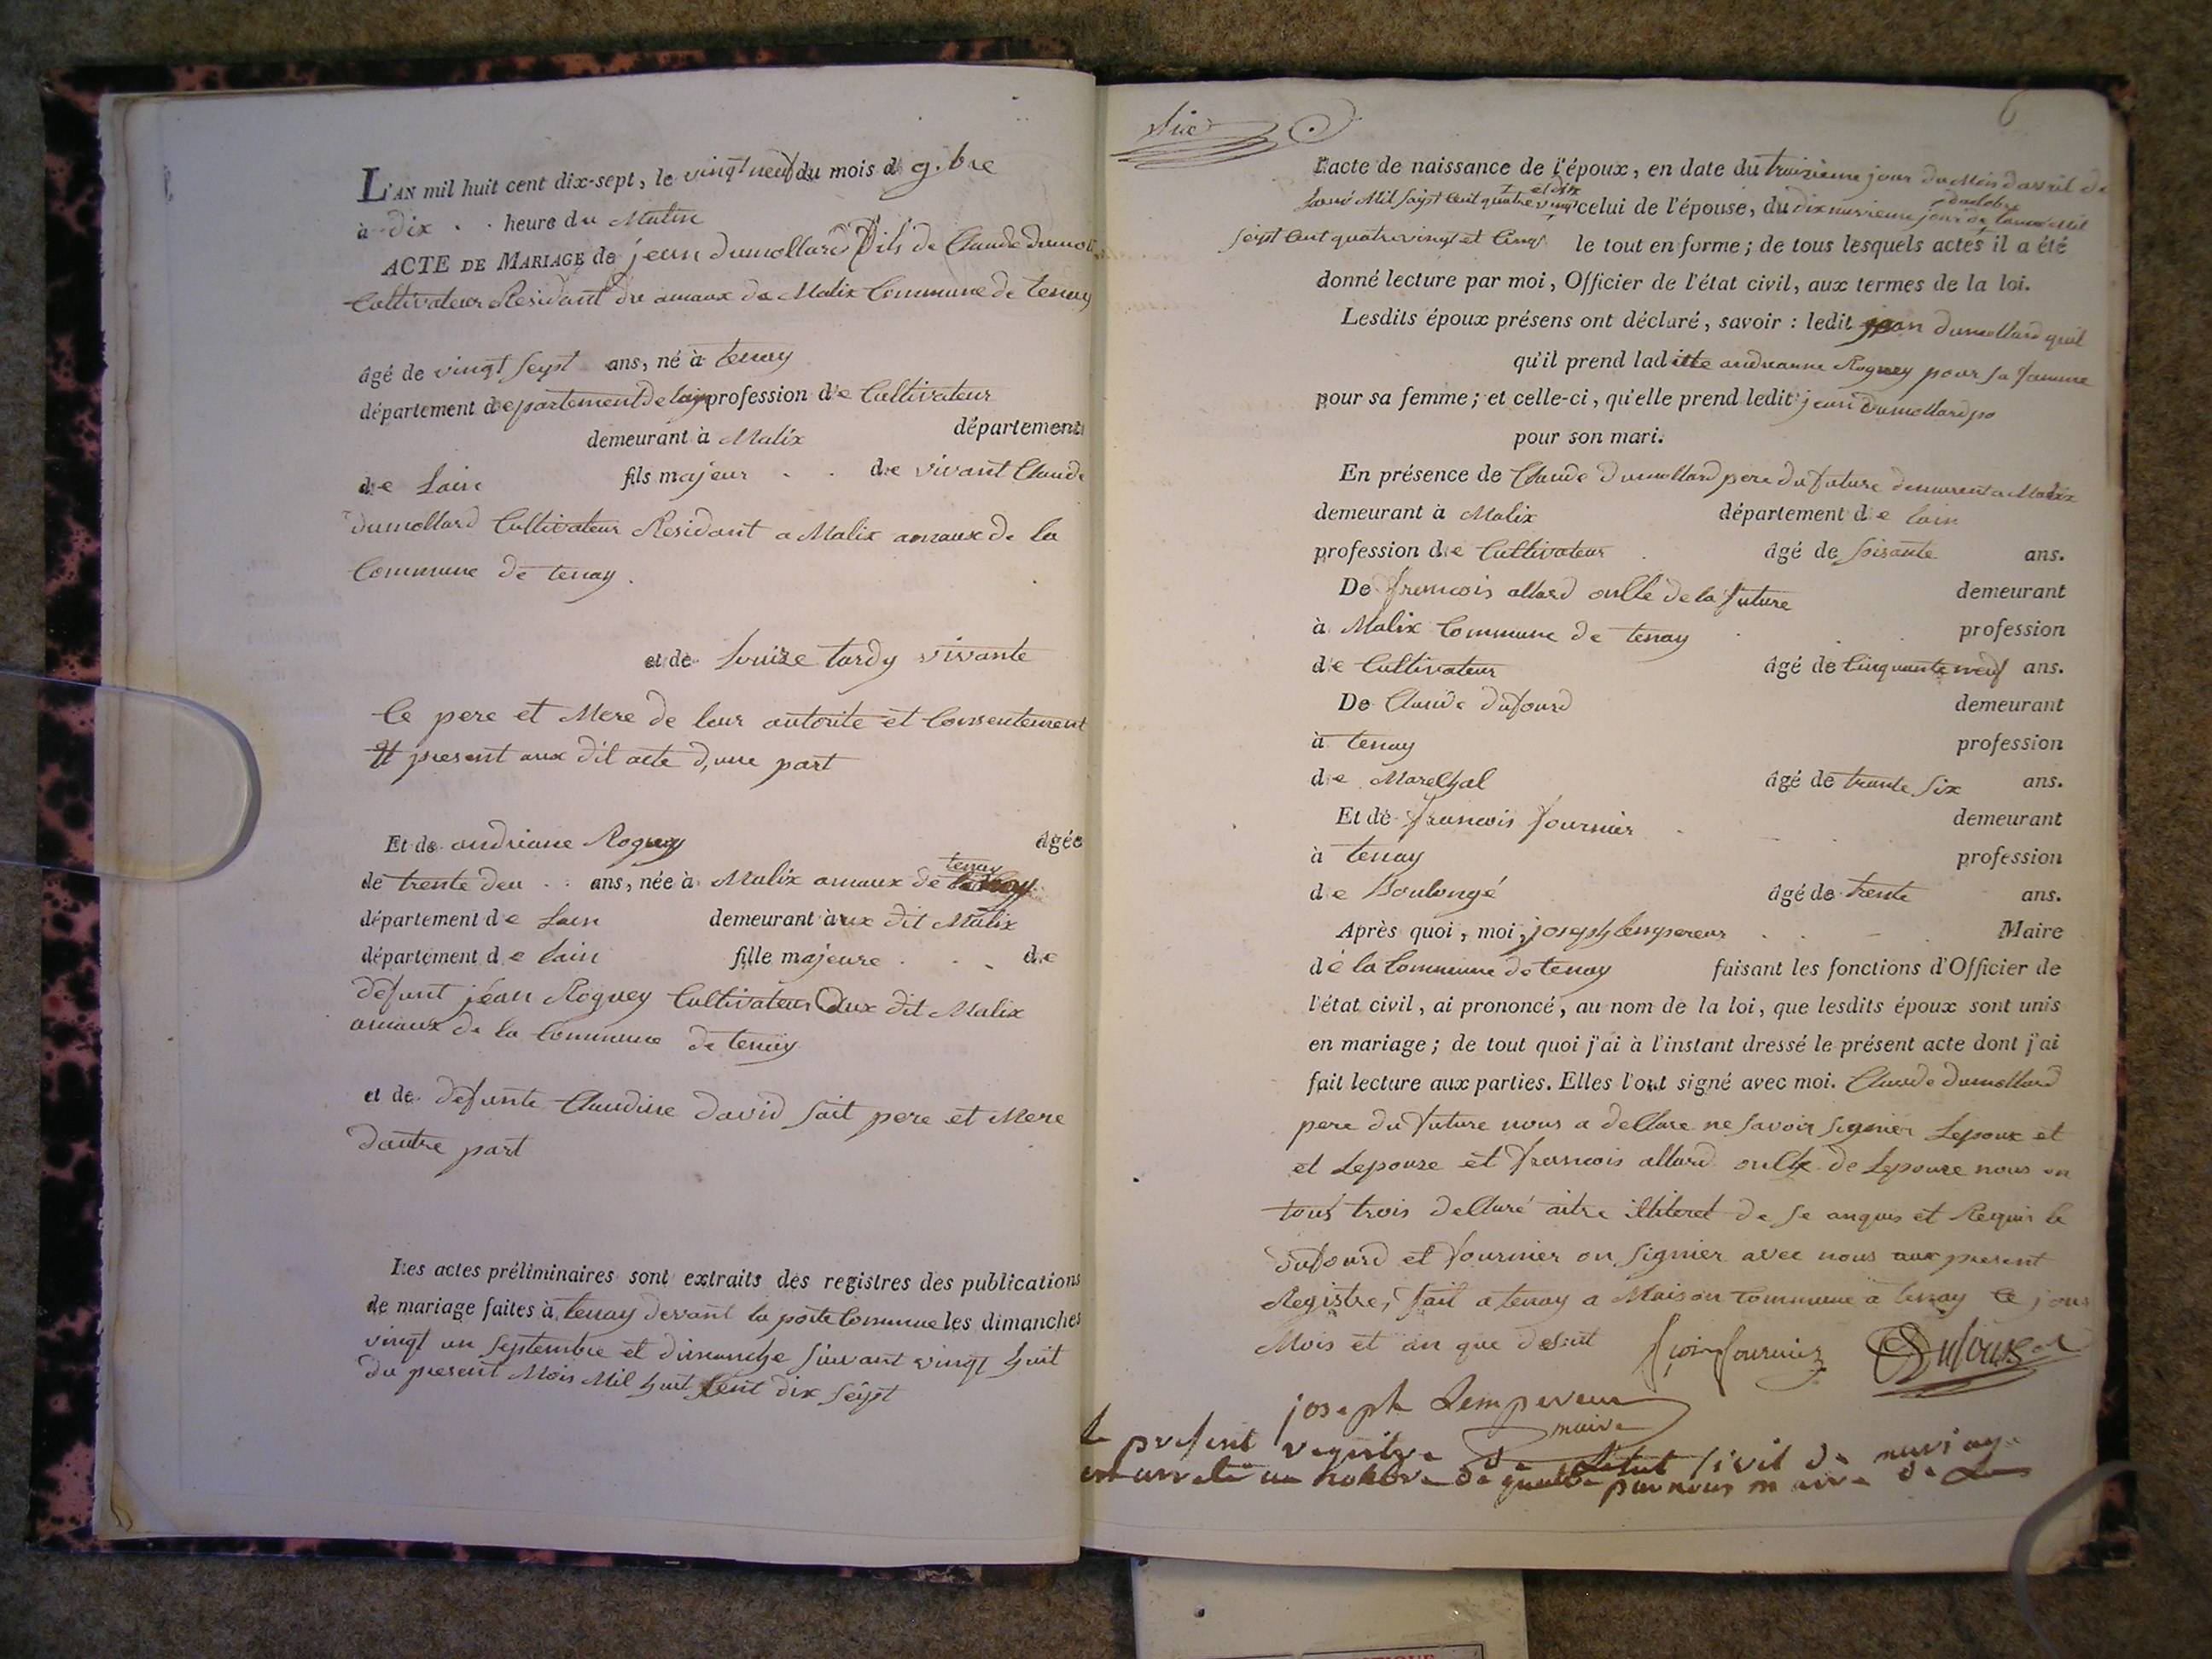 L'AN mil huit cent dix-sept, le vingt neuf du mois d 9.bre
à dix . . heure du Matin
ACTE DE MARIAGE de jean dumollard fils de Claude dumol
Cultivateur Residant du amaux de Malix Commune de tenay
âgé de vingt sept ans, né à tenay
département departement de lain profession de Cultivateur
demeurant à Malix département
de Lain fils majeur . . de vivant Claude
dumollard Cultivateur Residant a Malix amaux de la
Commune de tenay .
et de Louize tardy vivante
Ce pere et Mere de leur autorite et Consentement
Et present aux dit acte d,une part
Et de andriane Roguey âgée
de trente deu . . ans, née à Malix amaux de tenay
département de Lain demeurant àux dit Malix
département de Lain fille majeure . . de
defunt jean Roguey Cultivateur aux dit Malix
amaux de la Commune de tenay
et de defunte Claudine david sait pere et Mere
dautre part
Les actes préliminaires sont extraits des registres des publications
de mariage faites à tenay devant la porte Commune les dimanches
vingt un septembre et dimanche suivant vingt huit
du present Mois Mil huit Cent dix sêpt
six 6
L'acte de naissance de l'époux, en date du troisieme jour du Mois davril de
Lané Mil sayst Cent quatre vingt et dix celui de l'épouse, du dix nuvieme jour doctobre de lanné Mil
sept Cent quatre vingt et Cinq le tout en forme ; de tous lesquels actes il a été
donné lecture par moi, Officier de l'état civil, aux termes de la loi.
Lesdits époux présens ont déclaré, savoir : ledit jean dumollard quil
qu'il prend laditte andrianne Roguey pour sa famme
pour sa femme ; et celle-ci, qu'elle prend ledit jean dumollard po
pour son mari.
En présence de Claude dumollard pere du future demeurent a Malix
demeurant à Malix département de lain
profession de Cultivateur âgé de soisante ans.
De francois allard onlle de la future demeurant
à Malix Commune de tenay profession
de Cultivateur âgé de Cinquante neuf ans.
De Claude dufourd demeurant
à tenay profession
de Marelhal âgé de trante six ans.
Et de francois fournier demeurant
à tenay profession
de Boulongé âgé de trente ans.
Après quoi, moi, joseph lempereur Maire
de la Commune de tenay faisant les fonctions d'Officier de
l'état civil, ai prononcé, au nom de la loi, que lesdits époux sont unis
en mariage ; de tout quoi j'ai à l'instant dressé le présent acte dont j'ai
fait lecture aux parties. Elles l'ont signé avec moi. Claude dumollard
pere du future nous a dellare ne savoir signier Lepoux et
et Lepouze et francois allard onlle de Lepouze nous on
tous trois dellaré aitre illiteret de se anquis et Requis le
dufourd et fournier on signier avec nous aux present
Registre, fait a tenay a Maison Commune a tenay Ce jour
Mois et an que desut fçois fournier Dufourd
joseph Lempereur
maire
le present registre de Letat sivil de mariage
par nous maire